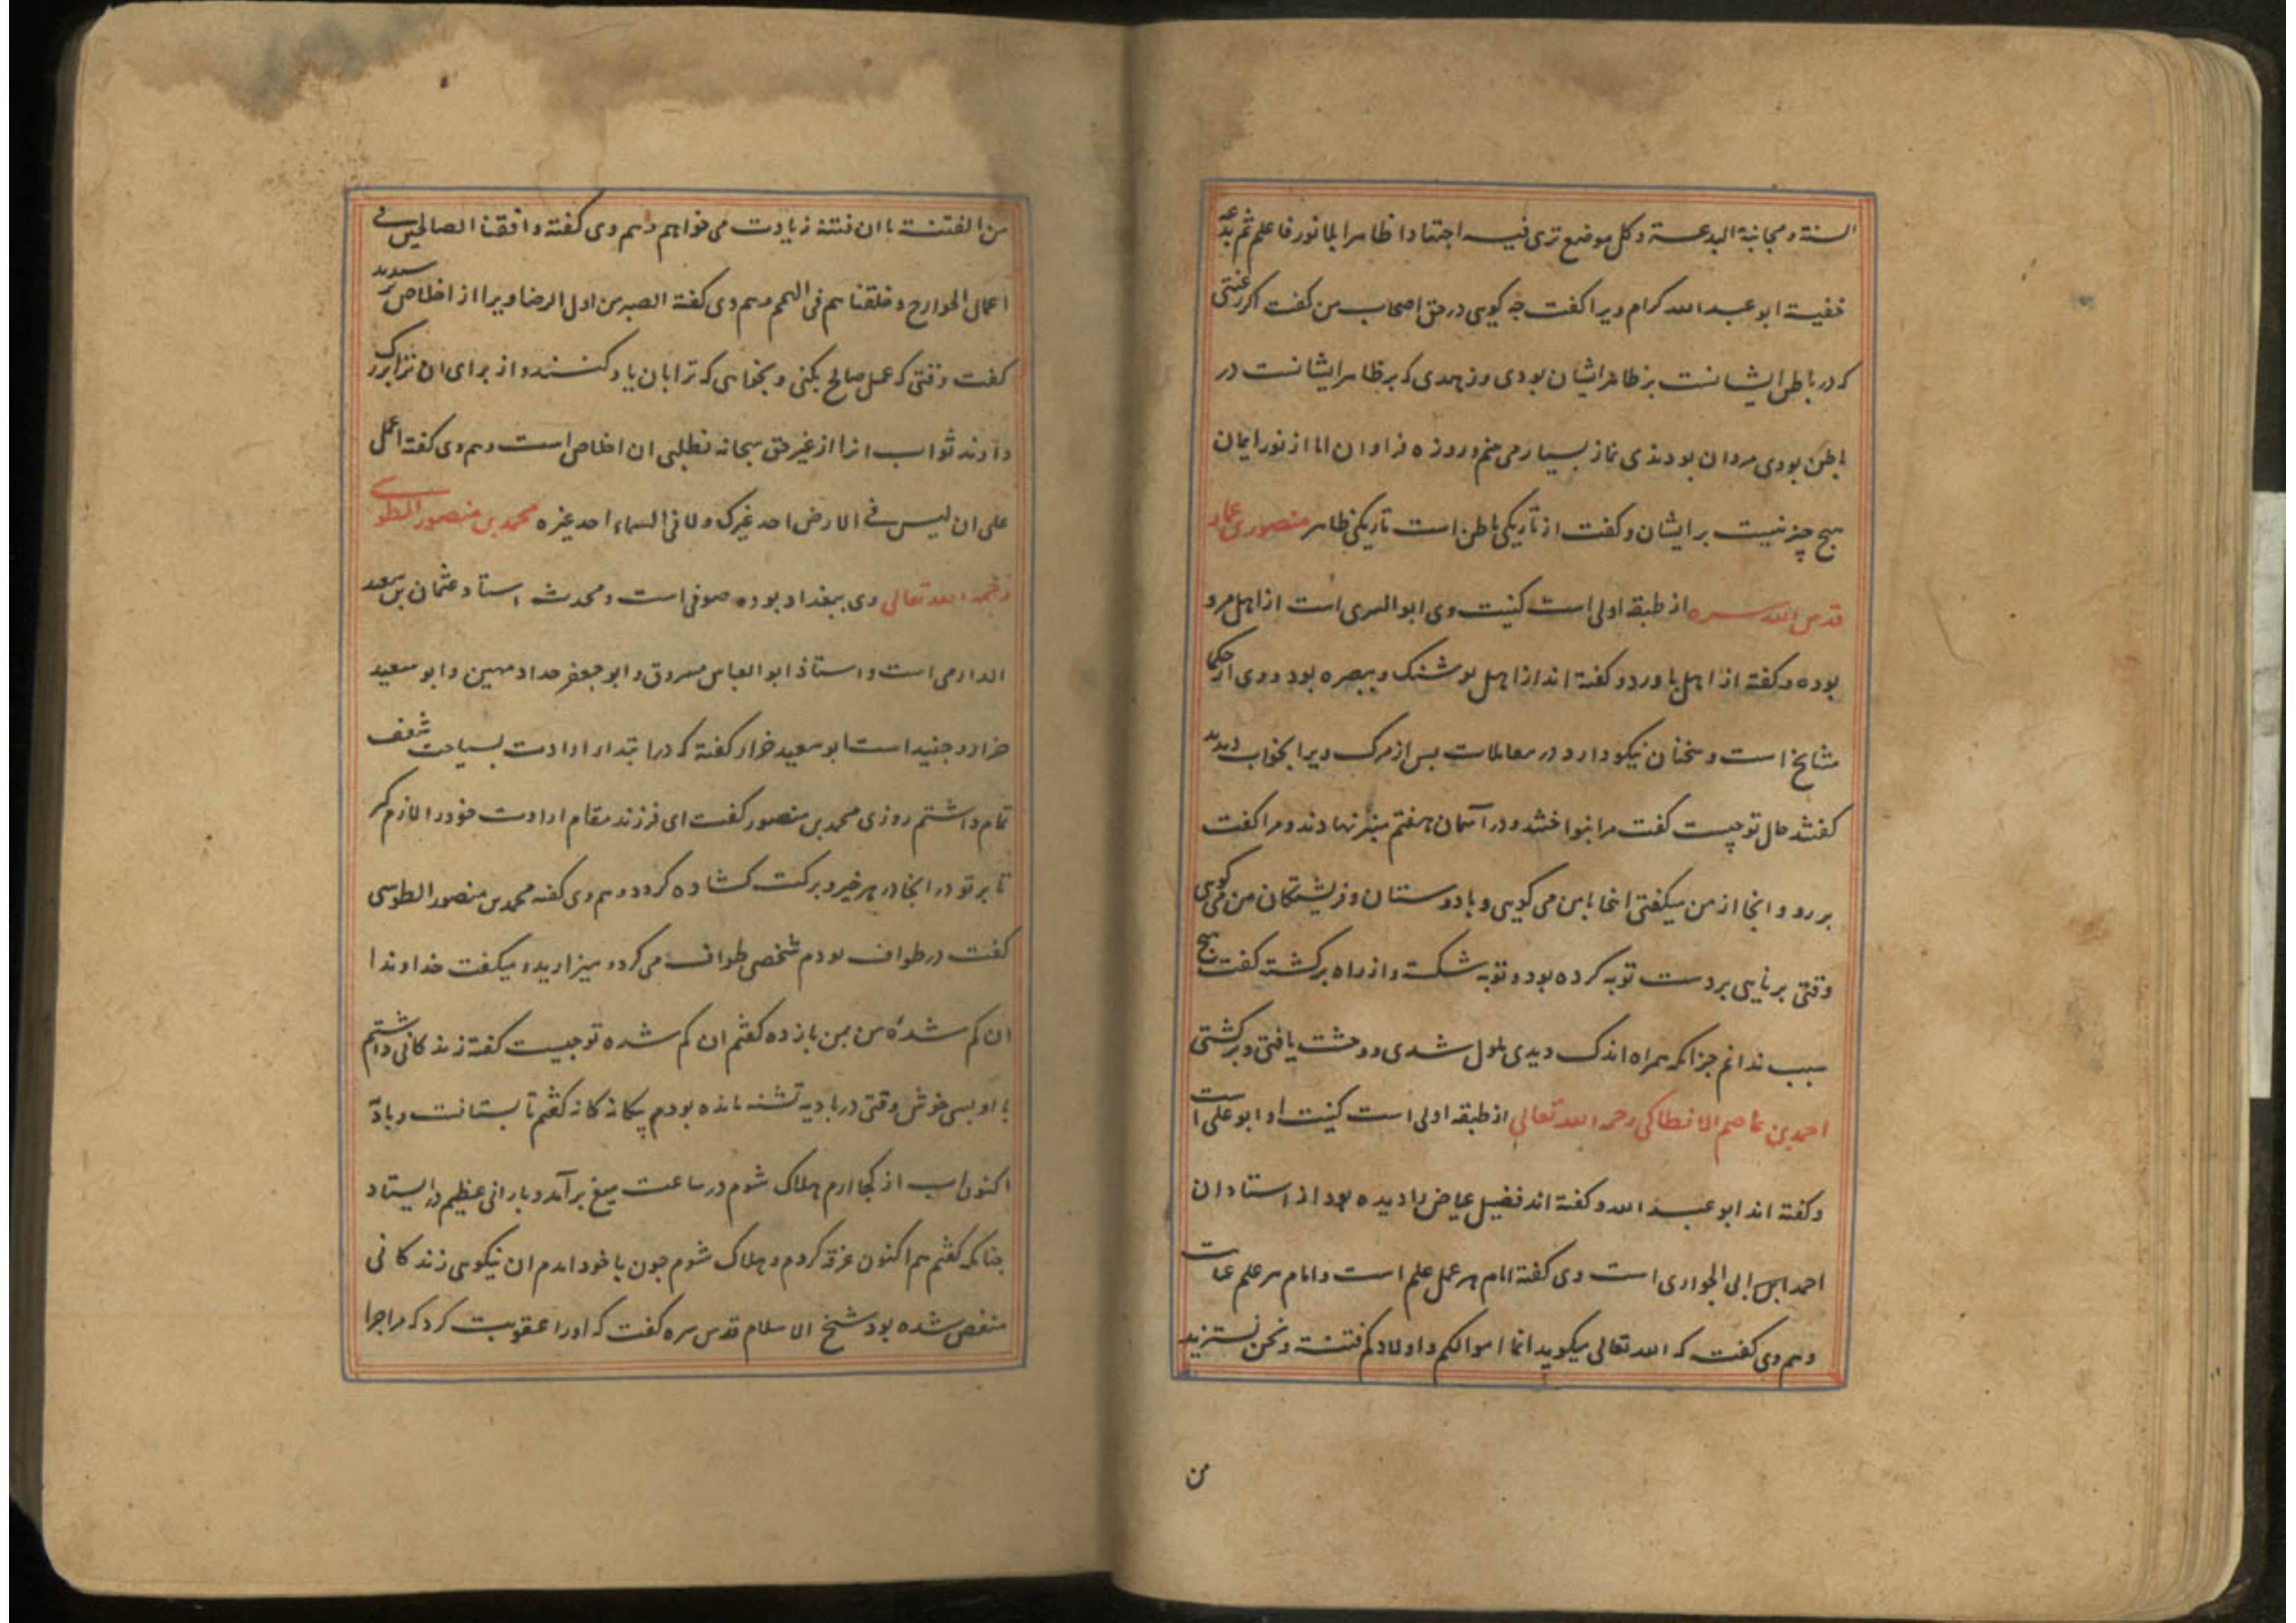 السنة و مجانبة البدعة و كل موضع تری فیه اجتهادا ظاهرا بلا نور فاعلم ثم بدعة
خفیة ابو عبد الله کرام ویرا کفت چه کویی در حق اصحاب من کفت اکر رغبتی
که در باطن ایشانست بر ظاهر ایشان بودی و زهدی که بر ظاهر ایشانست در
باطن بودی مردان بودندی نماز بسیار می بینم و روزه فراوان اما از نور ایمان
هیچ چیز نیست بر ایشان و کفت از تاریکی باطن است تاریکی ظاهر منصوری عمار
قدس الله سره از طبقه اولی است کنیت وی ابو السری است از اهل مرو
بوده و کفته از اهل باورد و کفته اند از اهل بوشنک و ببصره بود و وی از حکما
مشایخ است و سخنان نیکو دارد در معاملات بس از مرک ویرا بخواب دیدند
کفتند حال تو چیست کفت مرا بنواختند و در آسمان هفتم منبر نهادند و مرا کفت
بر رو و انجا از من میکفتی اینجا با من می کویی و با دوستان و فریشتکان من می کویی
وقتی برنایی بر دست توبه کرده بود و توبه شکست و از راه برکشته کفت هیچ
سبب ندانم جز انکه همراه اندک دیدی ملول شدی و وحشت یافتی و برکشتی
احمد بن عاصم الانطاکی رحمه الله تعالی از طبقه اولی است کنیت او ابو علی است
و کفته اند ابو عبد الله و کفته اند فضیل عیاض را دیده بود از استادان
احمد ابن ابی الحواری است وی کفته امام هر عمل علم است و امام هر علم عنایت
و هم وی کفت که الله تعالی میکوید انما اموالکم و اولادکم فتنة و نحن نستزید
من
من الفتنة با ان فتنه زیادت می خواهم و هم وی کفته وافقنا الصالحین فی
اعمال الجوارح و خلقنا هم فی الهمم و هم وی کفته الصبر من اول الرضا ویرا از اخلاص پرسیدند
کفت وقتی که عمل صالح بکنی و بخواهی که ترا بان یاد کنند و از برای ان ترا بزرک
دارند ثواب انرا از غیر حق سبحانه نطلبی ان اخلاص است و هم وی کفته اعمل
علی ان لیس فی الارض احد غیرک و لا فی السماء احد غیره محمد بن منصور الطوسی
رحمه الله تعالی وی ببغداد بوده صوفی است و محدث استاد عثمان بن سعید
الدارمی است و استاذ ابو العباس مسروق و ابو جعفر حداد مهین و ابو سعید
خراز و جنید است ابو سعید خراز کفته که در ابتداء ارادت بسیاحت شعف
تمام داشتم روزی محمد بن منصور کفت ای فرزند مقام ارادت خود را لازم کیر
تا بر تو در انجا در هر خیر و برکت کشاده کردد و هم وی کفته محمد بن منصور الطوسی
کفت در طواف بودم شخصی طواف می کرد و میزارید و میکفت خداوندا
ان کم شدهٔ من بمن باز ده کفتم ان کم شده تو چیست کفته زندکانی داشتم
با او بسی خوش وقتی در بادیه تشنه مانده بودم کفتم تابستانست و بادیه
اکنون اب از کجا ارم هلاک شوم در ساعت میغ برآمد و بارانی عظیم در ایستاد
چنانکه کفتم هم اکنون غرق کردم و هلاک شوم چون با خود امدم ان نیکویی زندکانی
منغص شده بود شیخ الاسلام قدس سره کفت که او را عقوبت کرد که مرا چرا